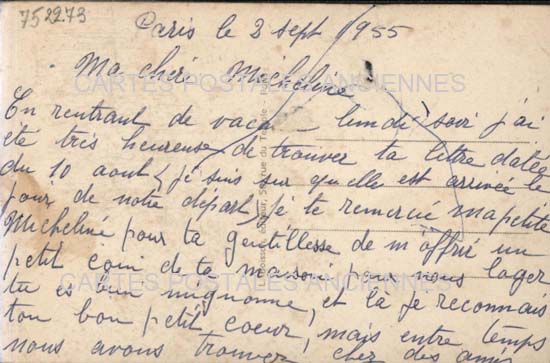 752273
Paris le 2 sept 1955
Ma chère Micheline
CARTES POSTALES ANCIENNES
En rentrant de vac lundi soir j'ai
été très heureuse de trouver ta lettre datée
du 10 aout, je suis sur qu'elle est arrivée le
jour de notre départ, je te remercie ma petite
Micheline pour ta gentillesse de m'offrir un
petit coin de ta maison pour nous loger
CARTES POSTALES ANCIENNES
tu es bien mignonne, et la je reconnais
ton bon petit coeur, mais entre temps
nous avons trouver chez des amis